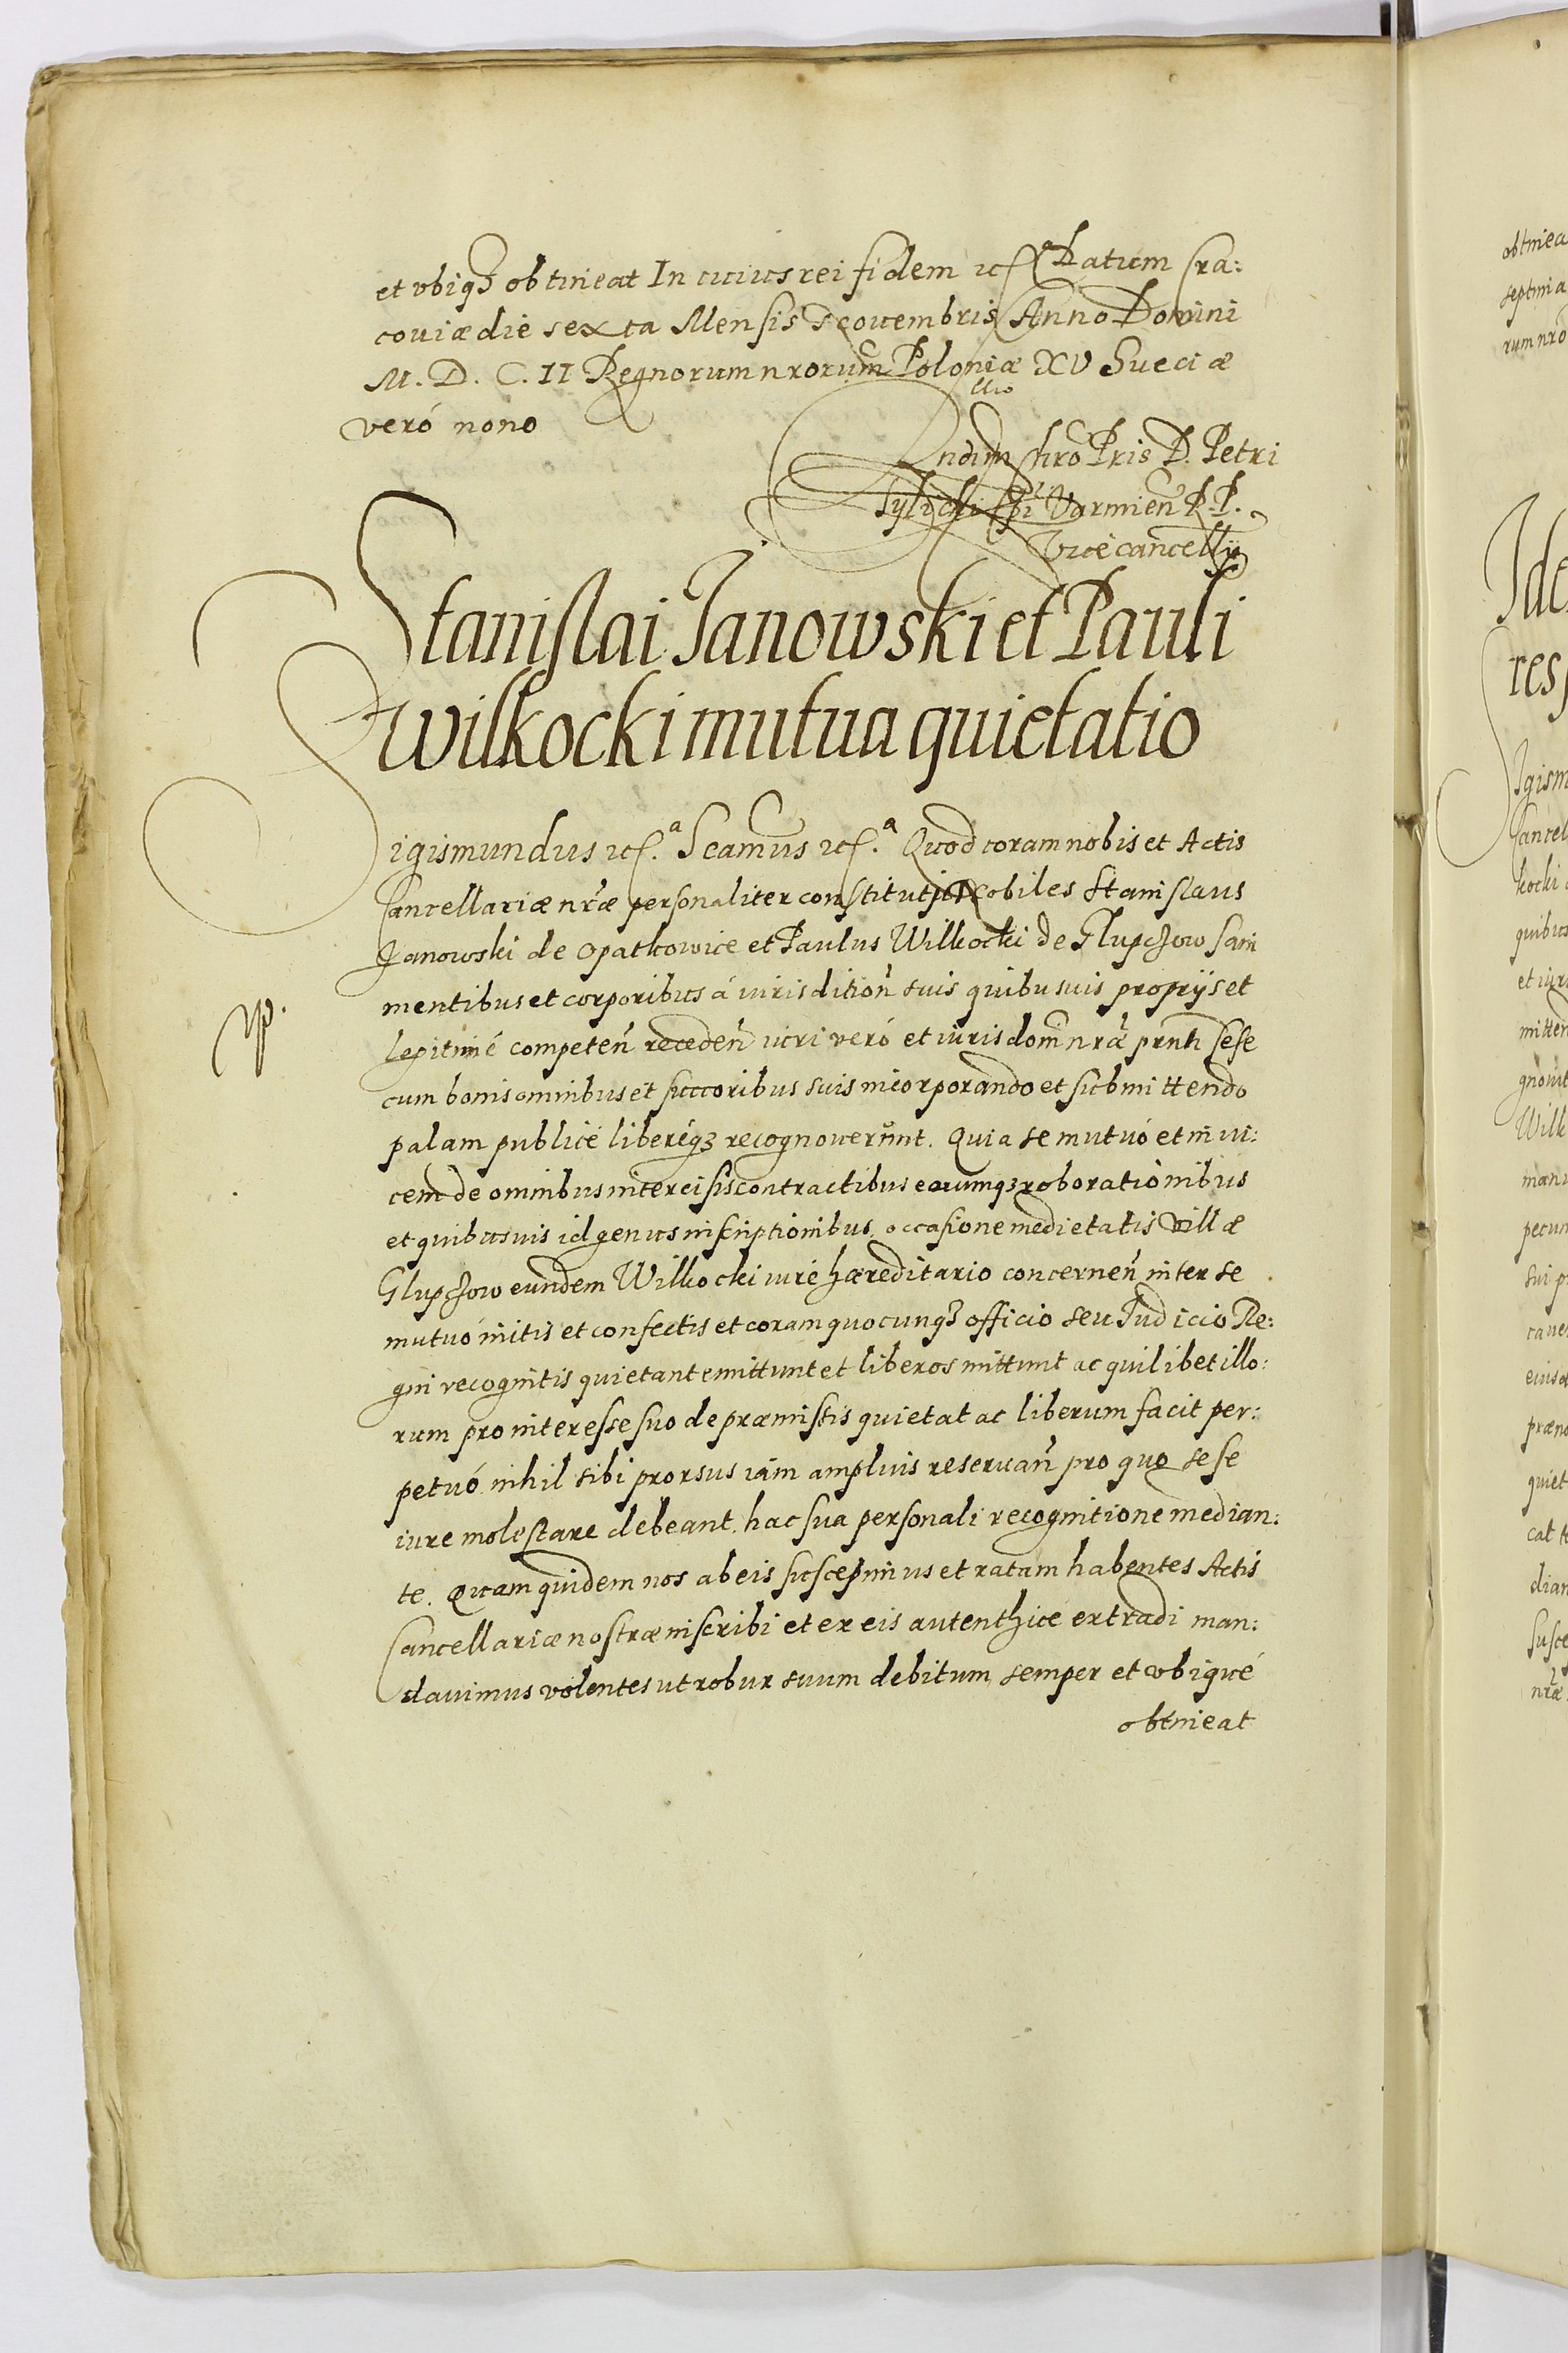 et vbiqȝ obtineat In cuius rei fidem etc.ª Datum Cra:
coviæ die sexta Mensis Novembris Anno Domini
M. D. C. II Regnorum nrorum Poloniæ XV Sueciæ
veró nono
Pris D. Petri
Tylicki Epi Varmien̄ R. P.
Vice cancellÿ
Stanislai Janowski et Pauli
Wilkocki mutua quietatio
Sigismundus etc.ª Seamus etc.ª Quod coram nobis et Actis
Cancellariæ nr̄æ personaliter constituti Nobiles Stanislaus
Janowski de Opatkowice et Paulus Wilkocki de Glupczow sani
mentibus et corporibus á iurisdition̄ suis quibusuis proprÿs et
legitimé competen̄ receden̄ iuri veró et iurisdom̄ nr̄æ prnti sese
cum bonis omnibus et succoribus suis incorporando et submittendo
palam publicé liberéqȝ recognouerunt. Quia se mutuó et in ui:
cem de omnibus intercisis contractibus earumqȝ roborationibus
et quibusuis id genus inscriptionibus occasione medietatis villæ
Glupczow eundem Wilkocki iuré hæreditario concernen̄ inter se
mutuó initis et confectis et coram quocunqȝ officio seu Judicio Re:
gni recognitis quietant emittunt et liberos mittunt ac quilibet illo:
rum pro interesse suo de præmissis quietat ac liberum facit per:
petuó nihil sibi prorsus iam amplius reseruan̄ pro quo sese
iure molestare debeant. hac sua personali recognitione median:
te. Quam quidem nos ab eis suscepimus et ratam habentes Actis
Cancellariæ nostræ inscribi et ex eis autenthicé extradi man:
dauimus volentes ut robur suum debitum semper et vbiqué
obtineat